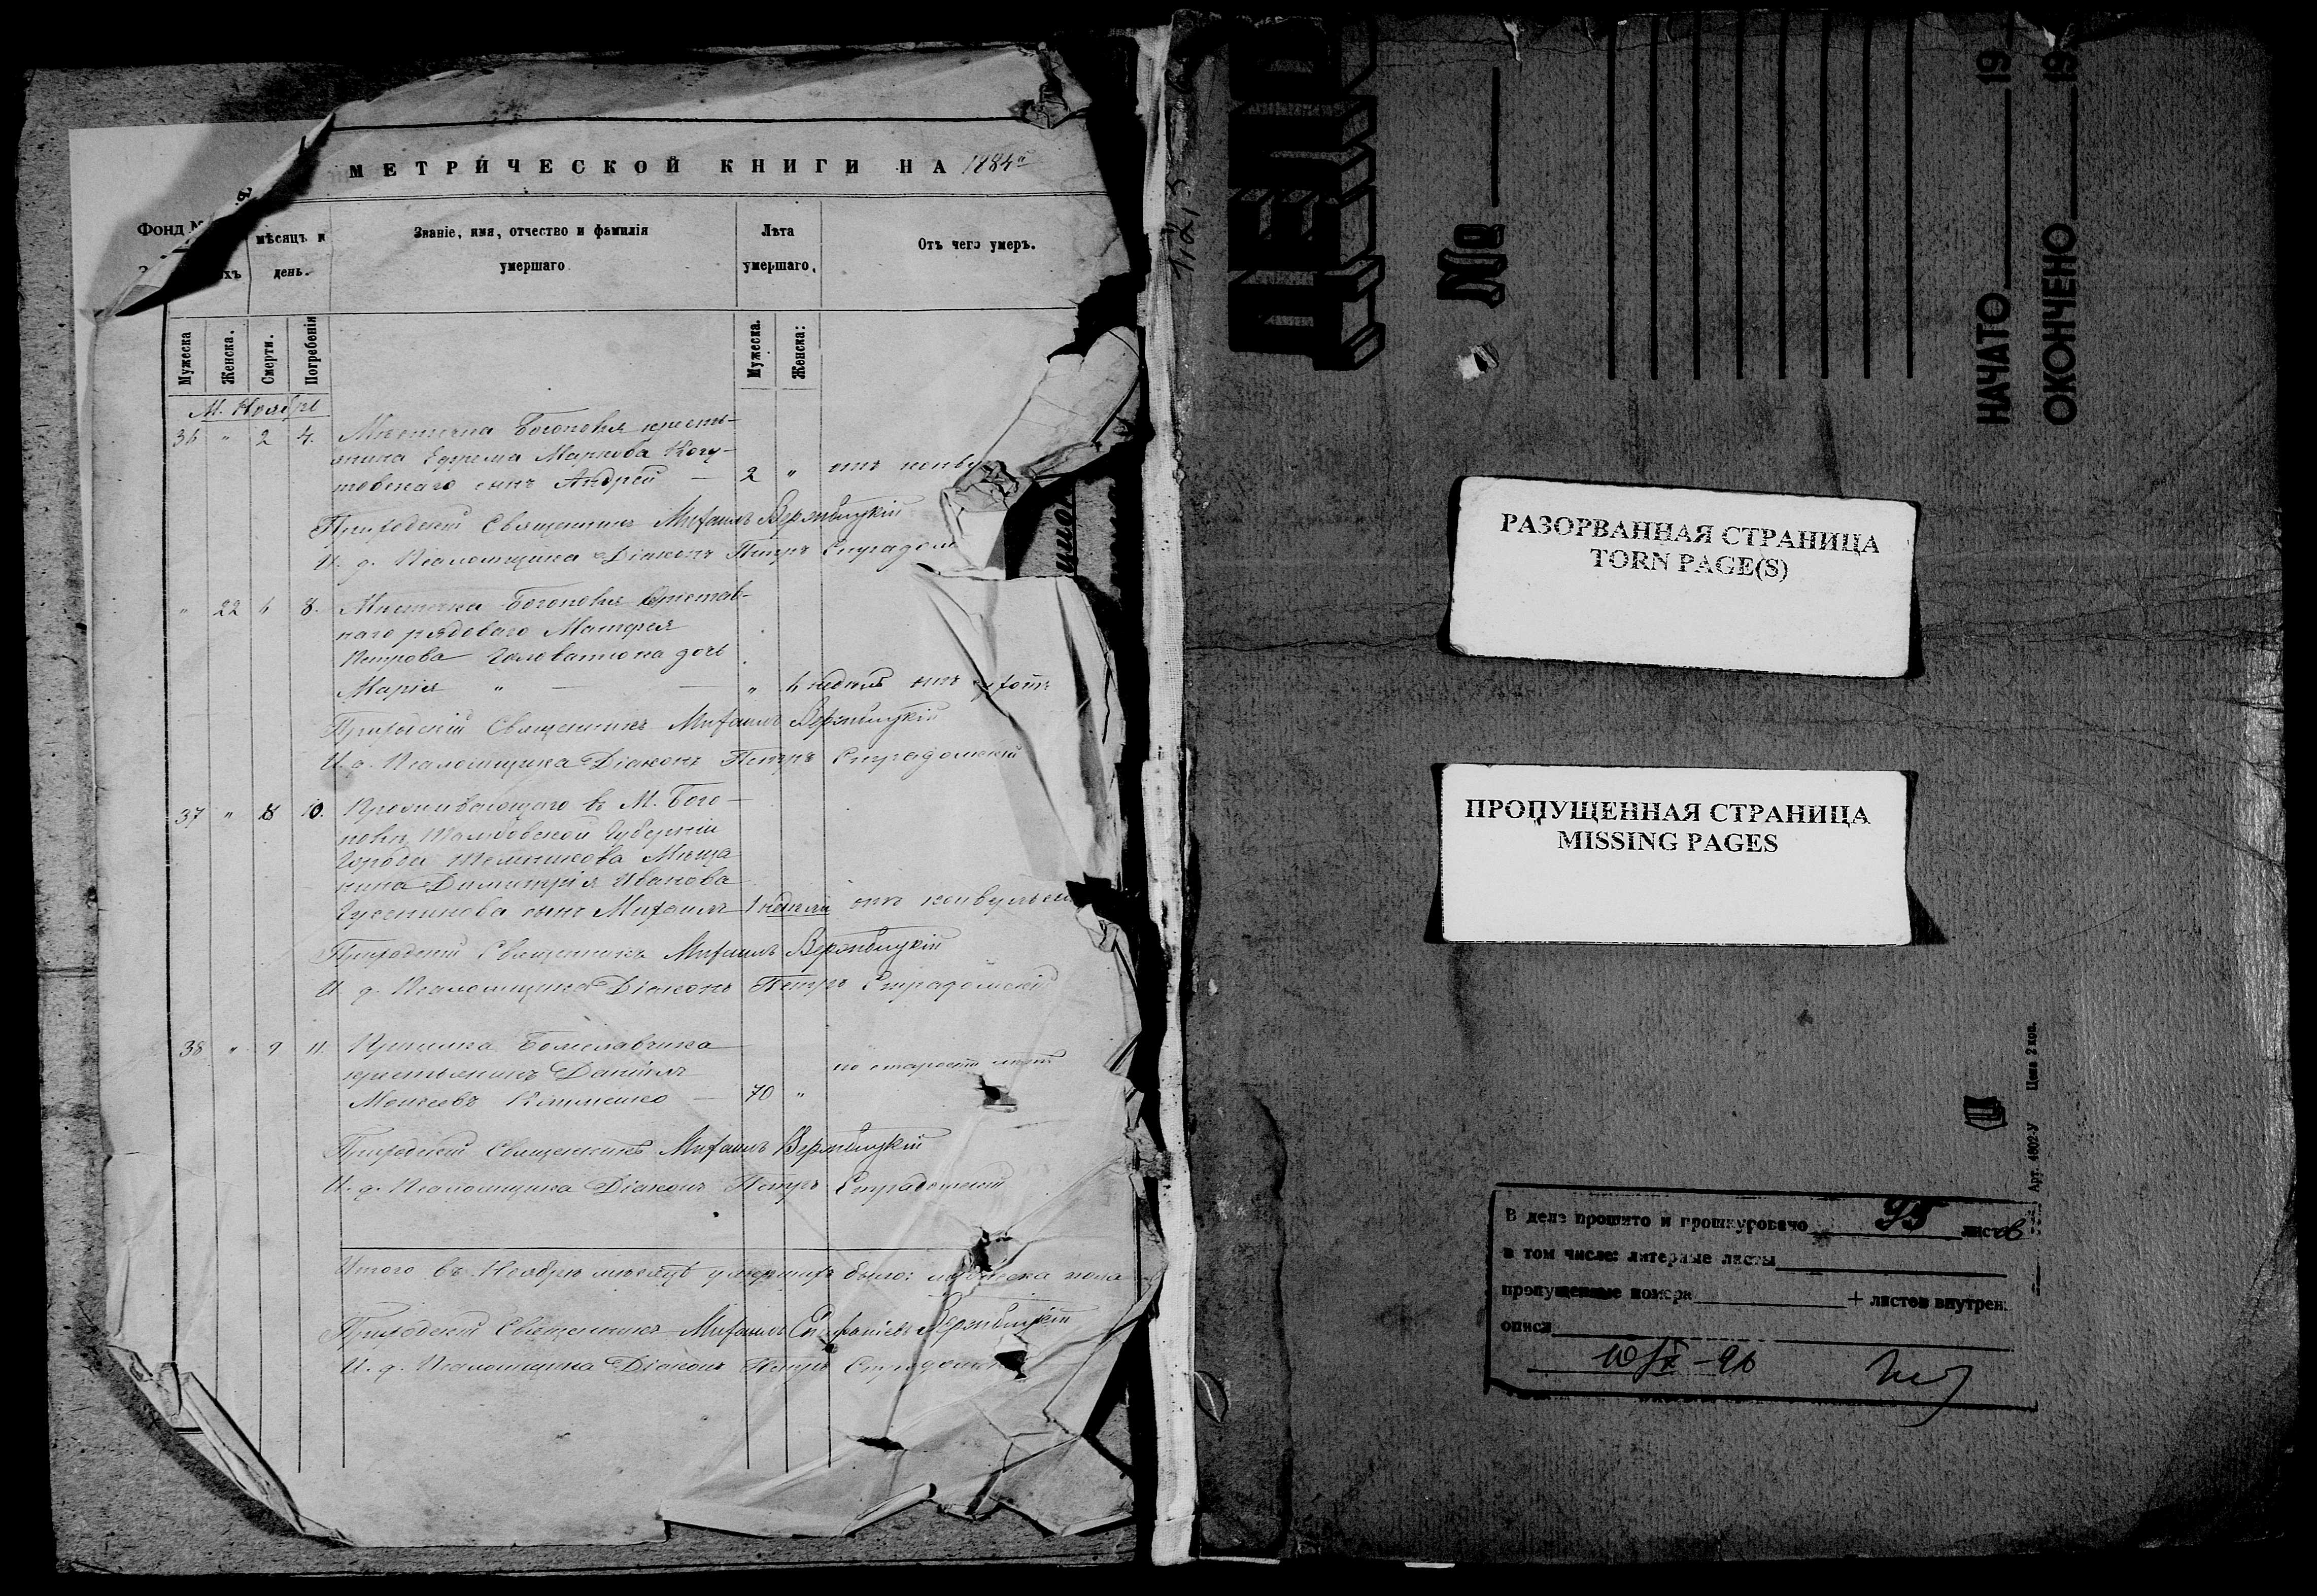 МЕТРИЧЕСКОЙ КНИГИ НА 1884
Фонд №
мѣсяцъ и
день.
Званіе, имя, отчество и фамилія
умершаго
Лѣта
умершаго.
Отъ чего умеръ.
Мужеска
Женска.
Смерти.
Погребенія
Мужеска.
Женска:
М. Ноябрь
36 " 2 4. Мѣстечка Богополя кресть-
янина Ефрема Маркова Когу-
товскаго сынъ Андрей — 2 " отъ
Приходскій Священникъ Михаилъ Вержбицкій
И. д. Псаломщика Діаконъ Петръ
" 22 6 8. Мѣстечка Богополя Отстав-
наго рядоваго Матфея
Петрова Головатюка дочь
Марія " — — " 6 недѣль отъ
Приходскій Священникъ Михаилъ Вержбицкій
И. д. Псаломщика Діаконъ Петръ Страдомскій
37 " 8 10. Проживающаго въ М. Бого-
полѣ, Тамбовской Губерніи
Города Темникова Мѣща
нина Димитрія Иванова
сынъ Михаилъ 1 недѣли отъ конвульсіи
Приходскій Священникъ Михаилъ Вержбицкій
И. д. Псаломщика Діаконъ Петръ Страдомскій
38 " 9 11.
крестьянинъ Даніилъ
Моисеевъ Клименко — 70 " по старости лѣтъ
Приходскій Священникъ Михаилъ Вержбицкій
И. д. Псаломщика Діаконъ Петръ Страдомскій
Итого въ Ноябрѣ мѣсяцѣ умершихъ было: мужеска пола
Приходскій Священникъ Михаилъ Вержбицкій
И. д. Псаломщика Діаконъ Петръ
ДЕЛО
№
НАЧАТО 19
ОКОНЧЕНО 19
РАЗОРВАННАЯ СТРАНИЦА
TORN PAGE(S)
ПРОПУЩЕННАЯ СТРАНИЦА
MISSING PAGES
Арт. 4602-У Цена 2 коп.
В деле прошито и прошнуровано 95 листов
в том числе: литерные листы
пропущенные номера + листов внутрен.
описи